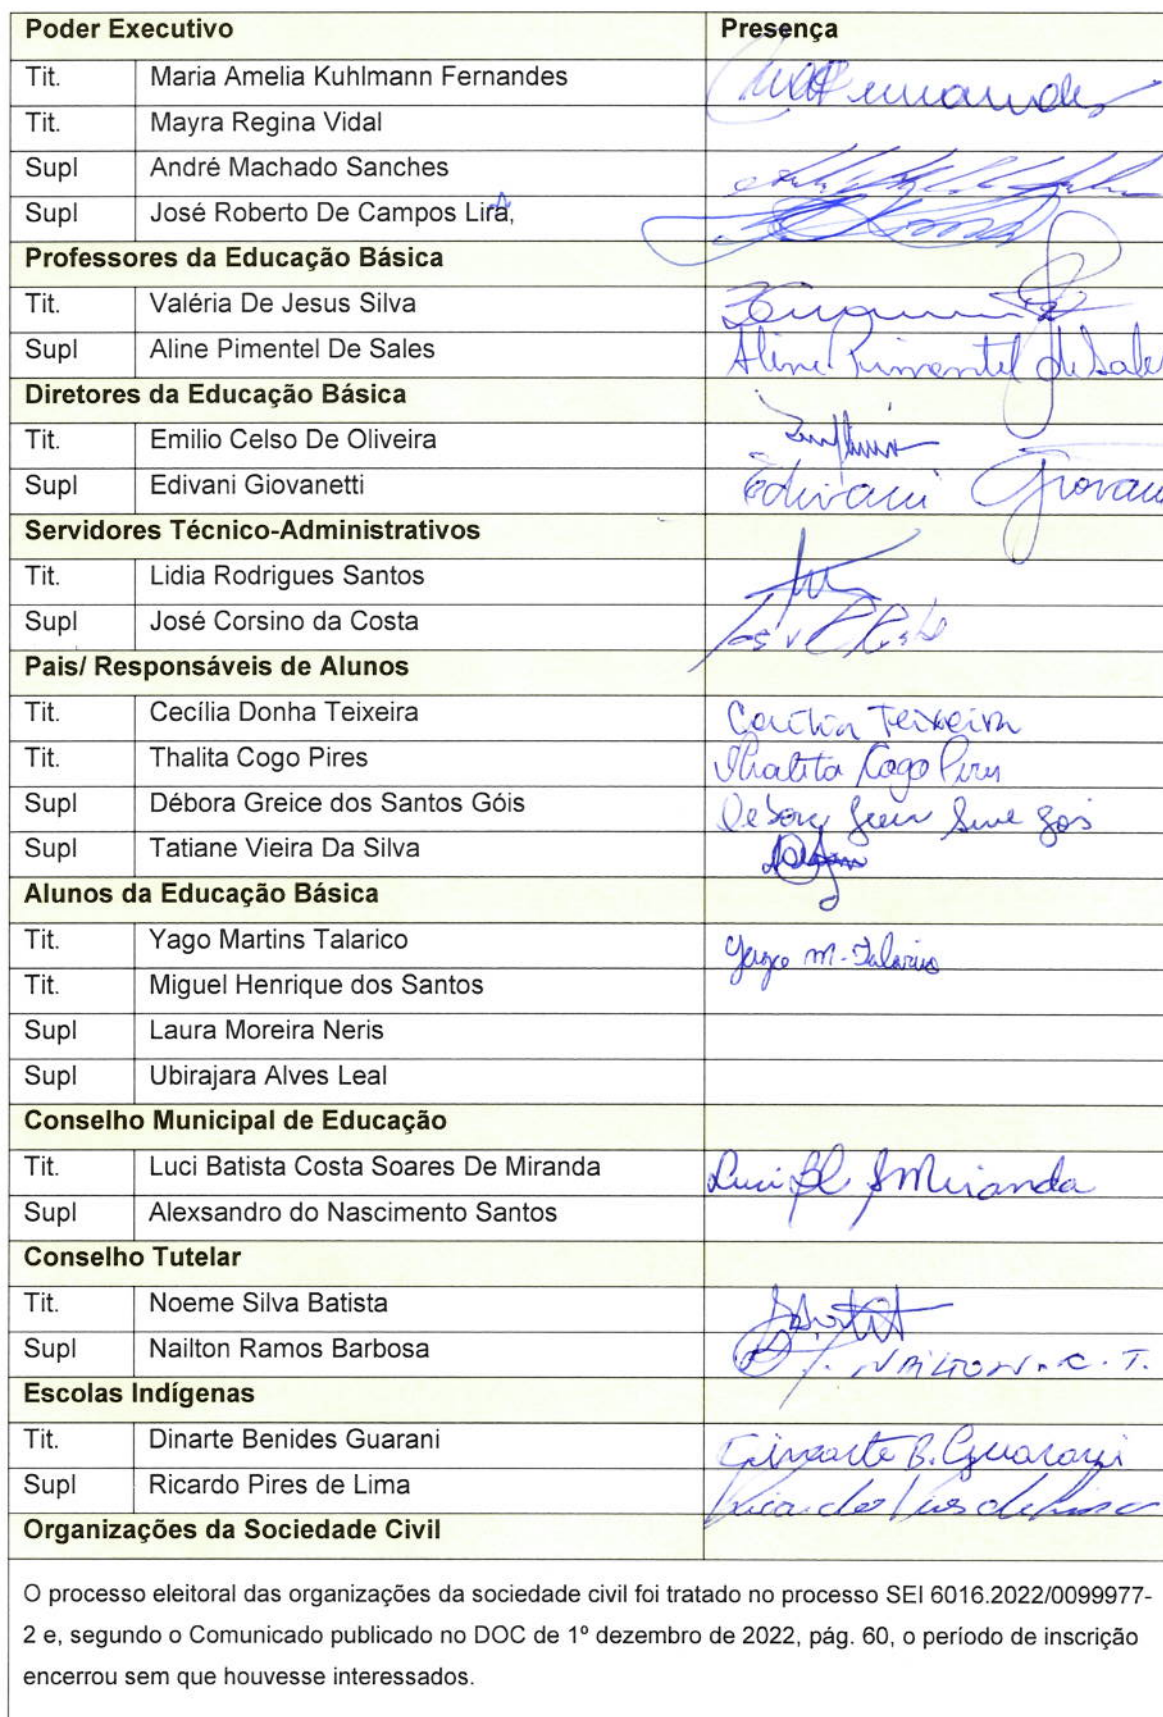 Poder Executivo Presença
Tit. Maria Amelia Kuhlmann Fernandes
Tit. Mayra Regina Vidal
Supl André Machado Sanches
Supl José Roberto De Campos Lira,
Professores da Educação Básica
Tit. Valéria De Jesus Silva
Supl Aline Pimentel De Sales Aline Pimentel de Sales
Diretores da Educação Básica
Tit. Emilio Celso De Oliveira
Supl Edivani Giovanetti Edivani
Servidores Técnico-Administrativos
Tit. Lidia Rodrigues Santos
Supl José Corsino da Costa
Pais/ Responsáveis de Alunos
Tit. Cecília Donha Teixeira Cecilia Teixeira
Tit. Thalita Cogo Pires Thalita Cogo Pires
Supl Débora Greice dos Santos Góis
Supl Tatiane Vieira Da Silva
Alunos da Educação Básica
Tit. Yago Martins Talarico Yago M. Talarico
Tit. Miguel Henrique dos Santos
Supl Laura Moreira Neris
Supl Ubirajara Alves Leal
Conselho Municipal de Educação
Tit. Luci Batista Costa Soares De Miranda Luci Miranda
Supl Alexsandro do Nascimento Santos
Conselho Tutelar
Tit. Noeme Silva Batista
Supl Nailton Ramos Barbosa NAILTON . C . T.
Escolas Indígenas
Tit. Dinarte Benides Guarani Dinarte B. Guarani
Supl Ricardo Pires de Lima Ricardo Pires de Lima
Organizações da Sociedade Civil
O processo eleitoral das organizações da sociedade civil foi tratado no processo SEI 6016.2022/0099977-
2 e, segundo o Comunicado publicado no DOC de 1º dezembro de 2022, pág. 60, o período de inscrição
encerrou sem que houvesse interessados.